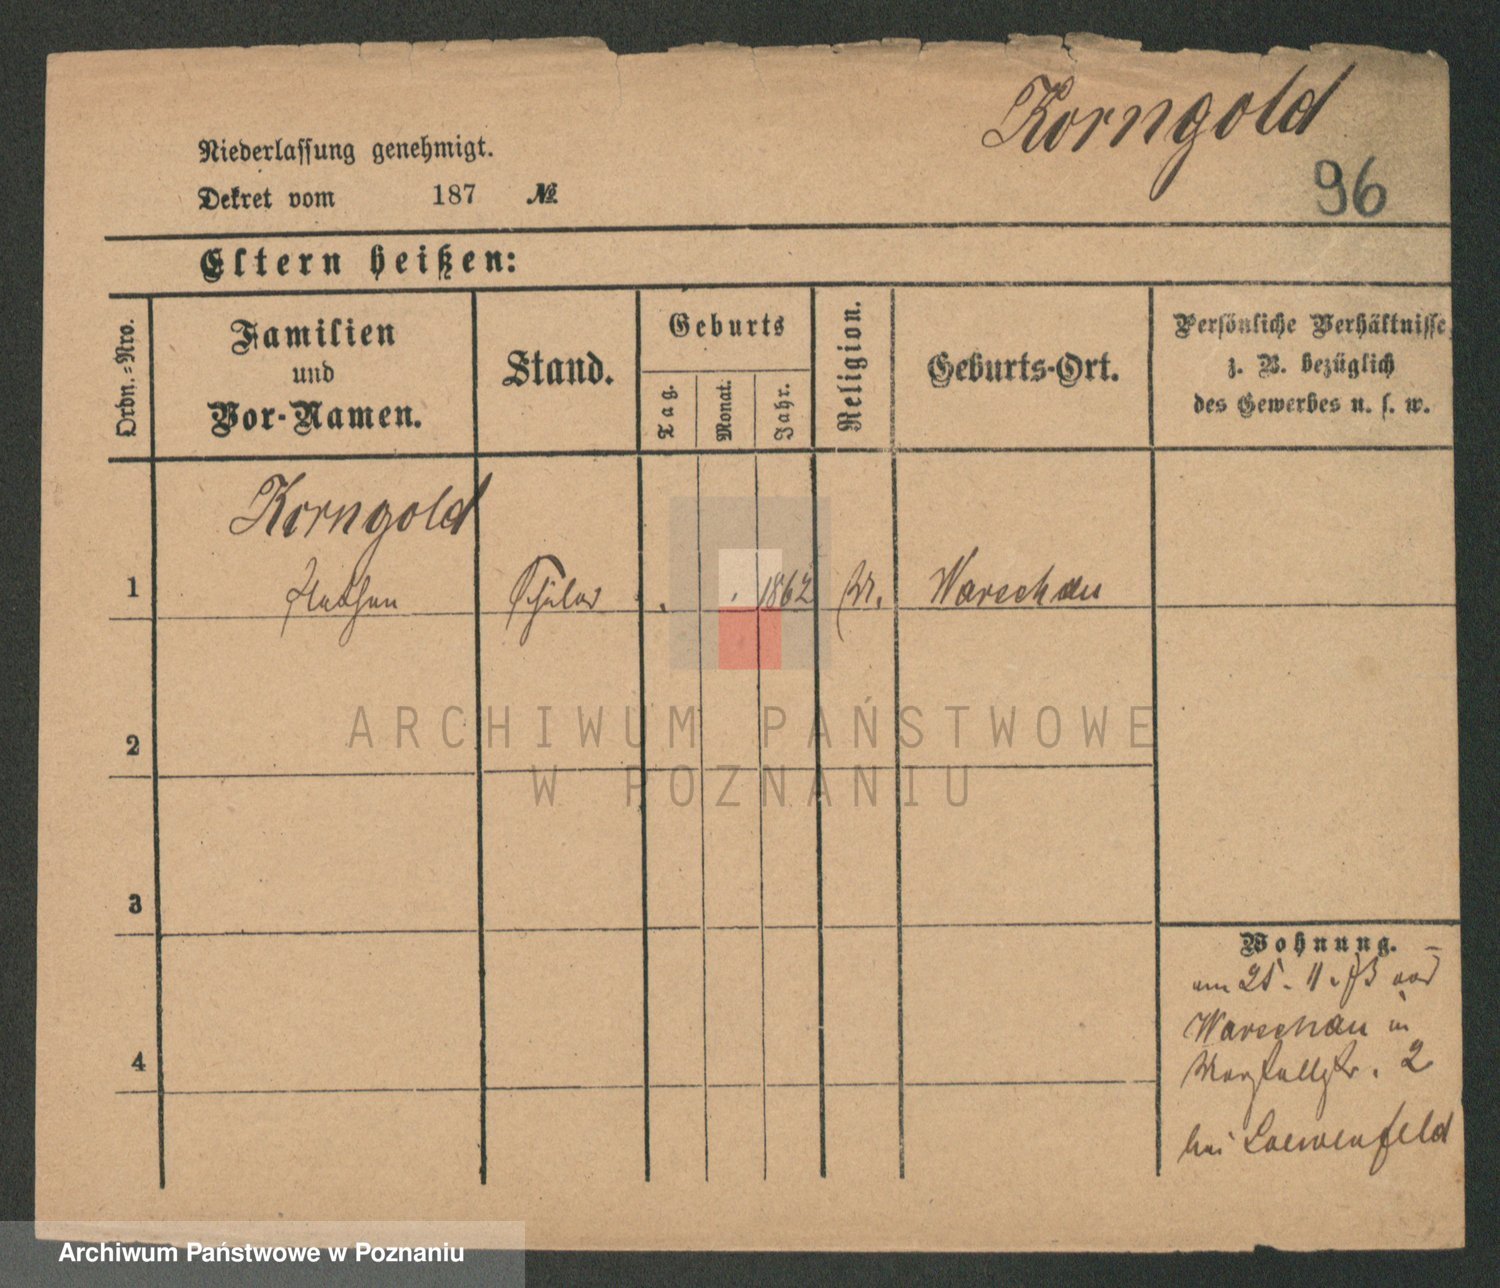 Korngold
96
Niederlassung genehmigt.
Dekret vom 187 №
Eltern heißen:
Ordn.=Nro.
Familien
und
Vor-Namen.
Stand.
Geburts
Tag.
Monat.
Jahr.
Religion.
Geburts-Ort.
Persönliche Verhältnisse
z. B. bezüglich
des Gewerbes u. s. w.
Korngold
1 Nathan Schüler . . 1862 M. Warschau
2
3
4
Wohnung.
am 25. 11. 73 von
Warschau in
2
bei Loewenfeld
ARCHIWUM PAŃSTWOWE
W POZNANIU
Archiwum Państwowe w Poznaniu